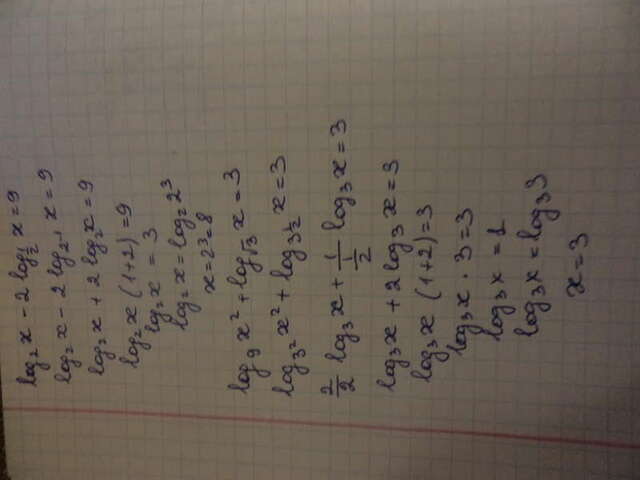 log₂ x − 2 log_{1/2} x = 9
log₂ x − 2 log_{2⁻¹} x = 9
log₂ x + 2 log₂ x = 9
log₂ x (1+2) = 9
log₂ x = 3
log₂ x = log₂ 2³
x = 2³ = 8
log₉ x² + log_{√3} x = 3
log_{3²} x² + log_{3^{1/2}} x = 3
2/2 log₃ x + 1/(1/2) log₃ x = 3
log₃ x + 2 log₃ x = 3
log₃ x (1+2) = 3
log₃ x · 3 = 3
log₃ x = 1
log₃ x = log₃ 3
x = 3